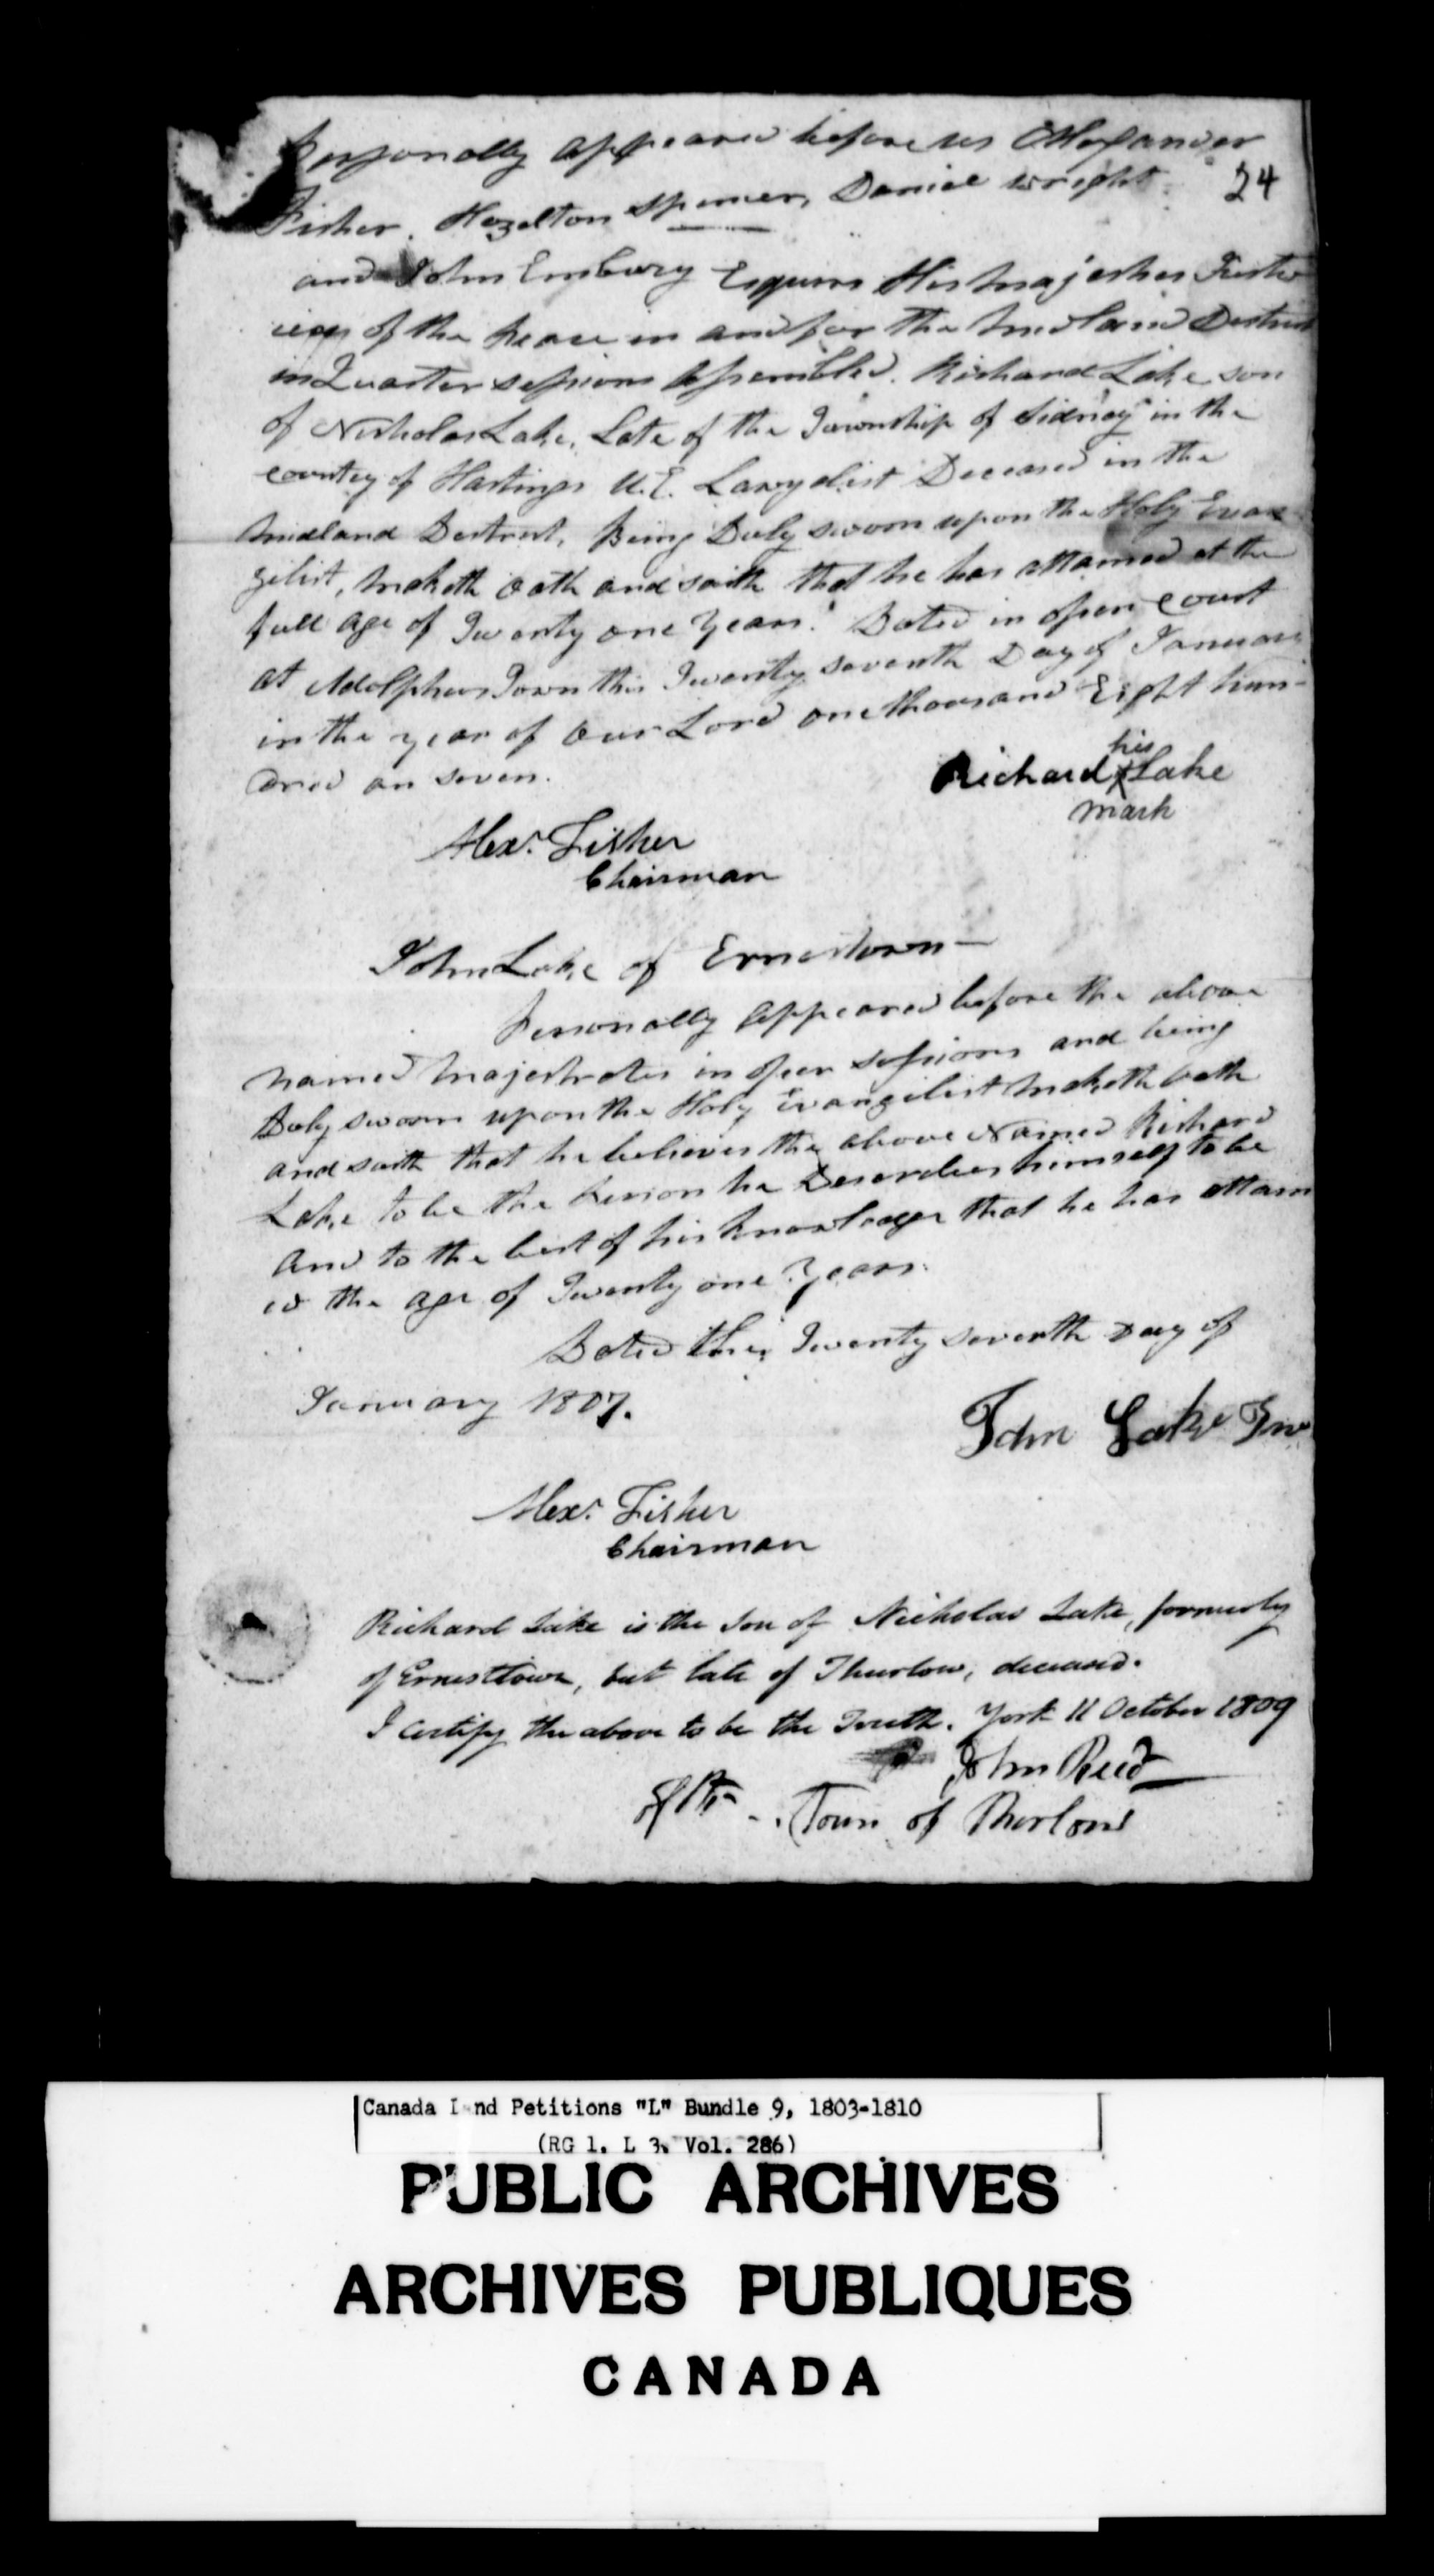 Personally appeared before us Allexander
24
Fisher, Hazelton Spencer, Daniel wright
and John Embury Esquires His Majesties Justi
ices of the Peace in and for the Midland District
in Quarter sessions Assembled. Richard Lake son
of Nicholas Lake, Late of the Township of Sidney in the
County of Hastings U.E. Loryalist Deceased in the
Midland District, Being Duly sworn upon the Holy Evan
gelist, Maketh Oath and saith that he has attained at the
full age of Twenty one Years. Dated in open Court
at Adolphus Town this Twenty seventh Day of January
in the year of our Lord one thousand Eight hun-
dred an seven.
his
Richard X Lake
mark
Alexr. Fisher
Chairman
John Lake of Ernestown —
Personally appeared before the above
named Majestrates in open sessions and being
Duly sworn upon the Holy Evangelist Maketh Oath
and saith that he believes the above Named Richard
Lake to be the Person he Describes himself to be
And to the best of his knowledge that he has attain
ed the age of Twenty one Years.
Dated this Twenty seventh Day of
January 1807.
John Lake Jnr
Alexr. Fisher
Chairman
Richard Lake is the Son of Nicholas Lake, formerly
of Ernesttown, but late of Thurlow, deceased.
I certify the above to be the Truth. York 11 October 1809
John Reed
Town of Thorlow
Canada L nd Petitions "L" Bundle 9, 1803-1810
(RG 1, L 3, Vol. 286)
PUBLIC ARCHIVES
ARCHIVES PUBLIQUES
CANADA